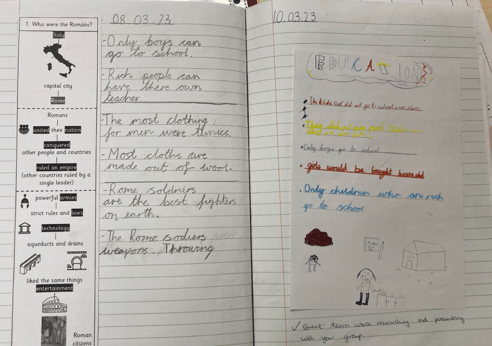 1 Who were the Romans?
Italy
capital city
Rome
Romans
united their nation
conquered
other people and countries
ruled an empire
(other countries ruled by a
single leader)
powerful armies
strict rules and laws
technology
aqueducts and drains
liked the same things
entertainment
Roman
citizens
08.03.23
-Only boys can
go to school.
-Rich people can
have there own
teacher
-The most clothing
for men were tunics.
-Most cloths are
made out of wool.
-Rome soldiers
are the best fighters
on earth.
-The Rome sodiers
weapons. Throwing
10.03.23
EDUCATION
The kids that did not go to school were slaves
Only boys go to school
girls would be taught
Only children who are rich
go to school
✓ Great team work researching and presenting
with your group.